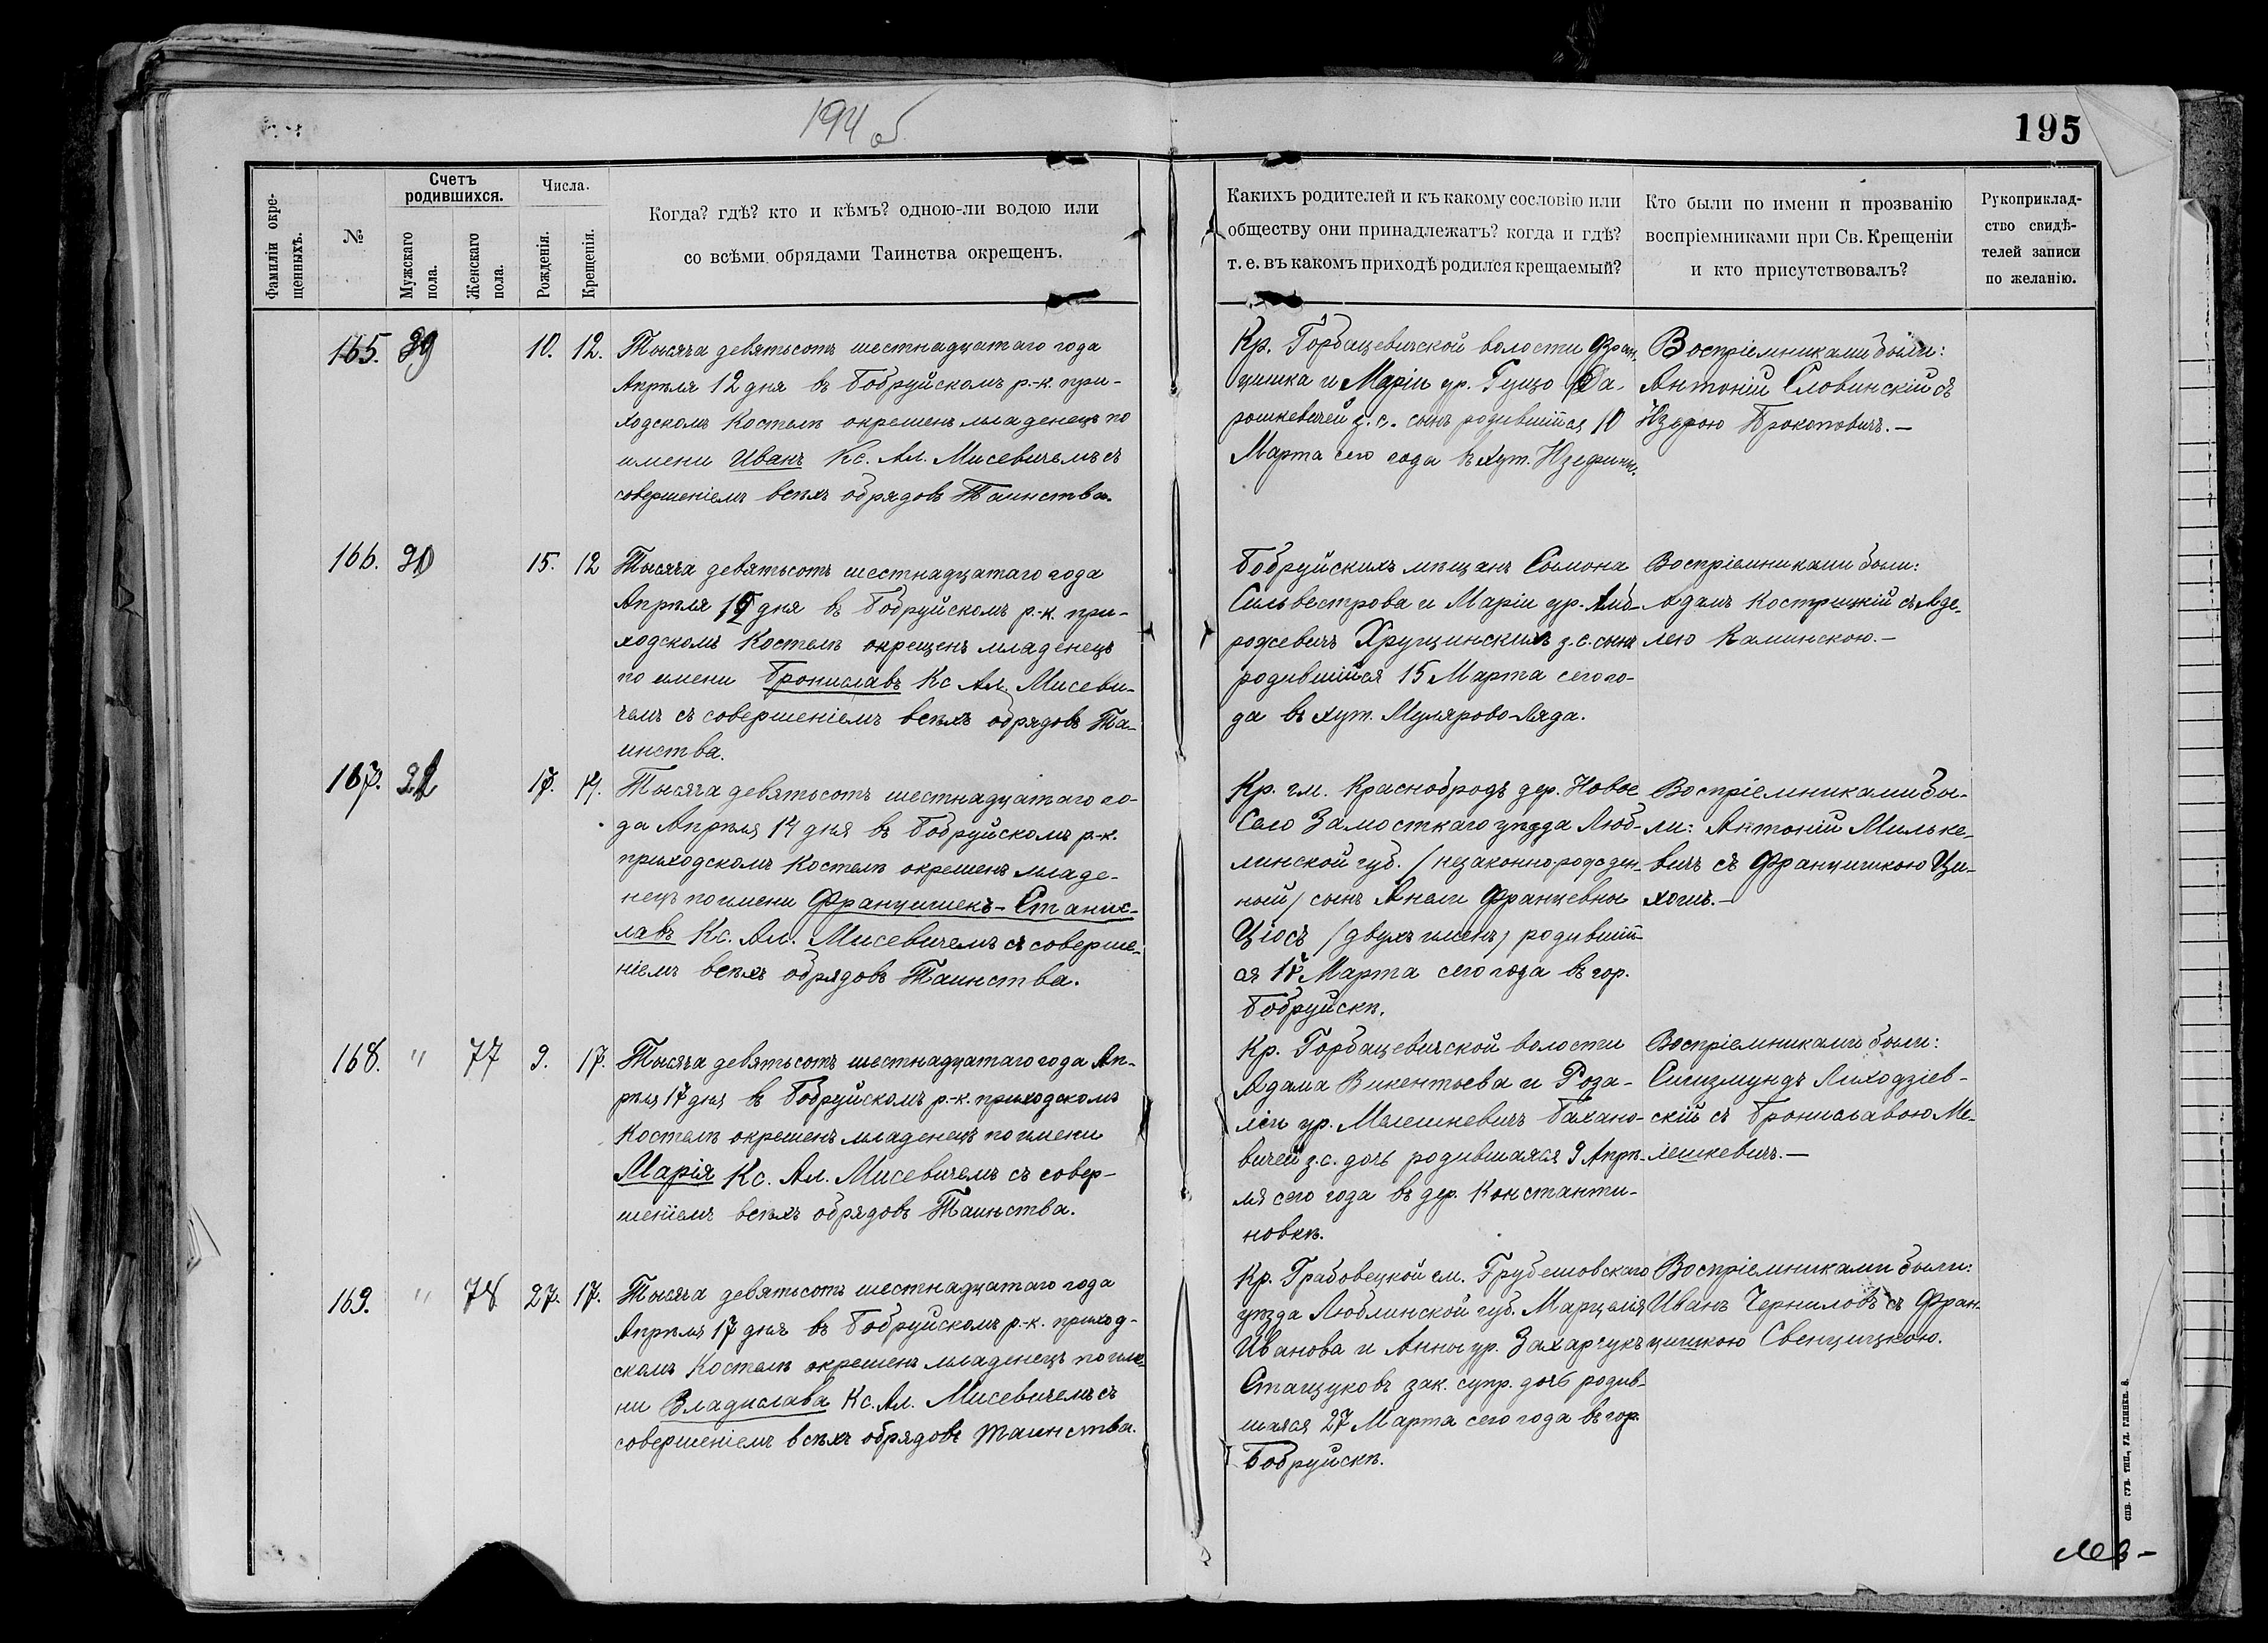 194 об
195
Фамиліи окре-
щенныхъ.
№
Счетъ
родившихся.
Мужскаго
пола.
Женскаго
пола.
Числа.
Рожденія.
Крещенія.
Когда? гдѣ? кто и кѣмъ? одною-ли водою или
со всѣми обрядами Таинства окрещенъ.
Какихъ родителей и къ какому сословію или
обществу они принадлежатъ? когда и гдѣ?
т. е. въ какомъ приходѣ родился крещаемый?
Кто были по имени и прозванію
воспріемниками при Св. Крещеніи
и кто присутствовалъ?
Рукоприклад-
ство свидѣ-
телей записи
по желанію.
165. 10. 12.
Тысяча девятьсотъ шестнадцатаго года
Апрѣля 12 дня въ Бобруйскомъ р.-к. при-
ходскомъ Костелѣ окрещенъ младенецъ по
имени Иванъ Кс. Ал. Мисевичемъ съ
совершеніемъ всѣхъ обрядовъ Таинства.
Кр. Горбацевичской волости Фран-
цишка и Маріи ур. Гуцо Да-
рошкевичей з. с. сынъ родившійся 10
Марта сего года въ хут.
Воспріемниками были:
Антоній Словинскій съ
Прокоповичъ. —
166. 15. 12
Тысяча девятьсотъ шестнадцатаго года
Апрѣля 12 дня въ Бобруйскомъ р.-к. при-
ходскомъ Костелѣ окрещенъ младенецъ
по имени Брониславъ Кс Ал. Мисеви-
чемъ съ совершеніемъ всѣхъ обрядовъ Та-
инства.
Бобруйскихъ мѣщанъ Сымона
Сильвестрова и Маріи ур. Амб-
рожевичъ Хрущинскихъ з. с. сынъ
родившійся 15 Марта сего го-
да въ хут. Мулярово-Ляда.
Воспріемниками были:
Адамъ Кострицкій съ Аде-
лею Каминскою. —
167. 17. 14.
Тысяча девятьсотъ шестнадцатаго го-
да Апрѣля 14 дня въ Бобруйскомъ р-к.
приходскомъ Костелѣ окрещенъ младе-
нецъ по имени Францишекъ-Станис-
лавъ Кс. Ал. Мисевичемъ съ соверше-
ніемъ всѣхъ обрядовъ Таинства.
Кр. гм. Краснобродъ дер. Новое
Село Замосткаго уѣзда Люб-
линской губ. /незаконнорожден-
ный/ сынъ Анели Францевны
Ціосъ /двухъ именъ/ родившій-
ся 17 Марта сего года въ гор.
Бобруйскѣ.
Воспріемниками бы-
ли: Антоній Мильке-
вичъ съ Францишкою Ци-
хошъ. —
168. " 77 9. 17.
Тысяча девятьсотъ шестнадцатаго года Ап-
рѣля 17 дня въ Бобруйскомъ р.-к. приходскомъ
Костелѣ окрещенъ младенецъ по имени
Марія Кс. Ал. Мисевичемъ съ совер-
шеніемъ всѣхъ обрядовъ Таинства.
Кр. Горбацевичской волости
Адама Викентьева и Роза-
ліи ур. Мелешкевичъ Бахано-
вичей з. с. дочь родившаяся 9 Апрѣ-
ля сего года въ дер. Константи-
новкѣ.
Воспріемниками были:
Сигизмундъ Лиходзіев-
скій съ Брониславою Ме-
лешкевичъ. —
169. " 78 27. 17.
Тысяча девятьсотъ шестнадцатаго года
Апрѣля 17 дня въ Бобруйскомъ р.-к. приход-
скомъ Костелѣ окрещенъ младенецъ по име-
ни Владислава Кс. Ал. Мисевичемъ съ
совершеніемъ всѣхъ обрядовъ таинства.
Кр. Грабовецкой гм. Грубешовскаго
уѣзда Люблинской губ. Марцелія
Иванова и Анны ур. Захарчукъ
Стащуковъ зак. супр. дочь родив-
шаяся 27 Марта сего года въ гор.
Бобруйскѣ.
Воспріемниками были:
Иванъ Черниловъ съ Фран-
цишкою Свенцицкою.